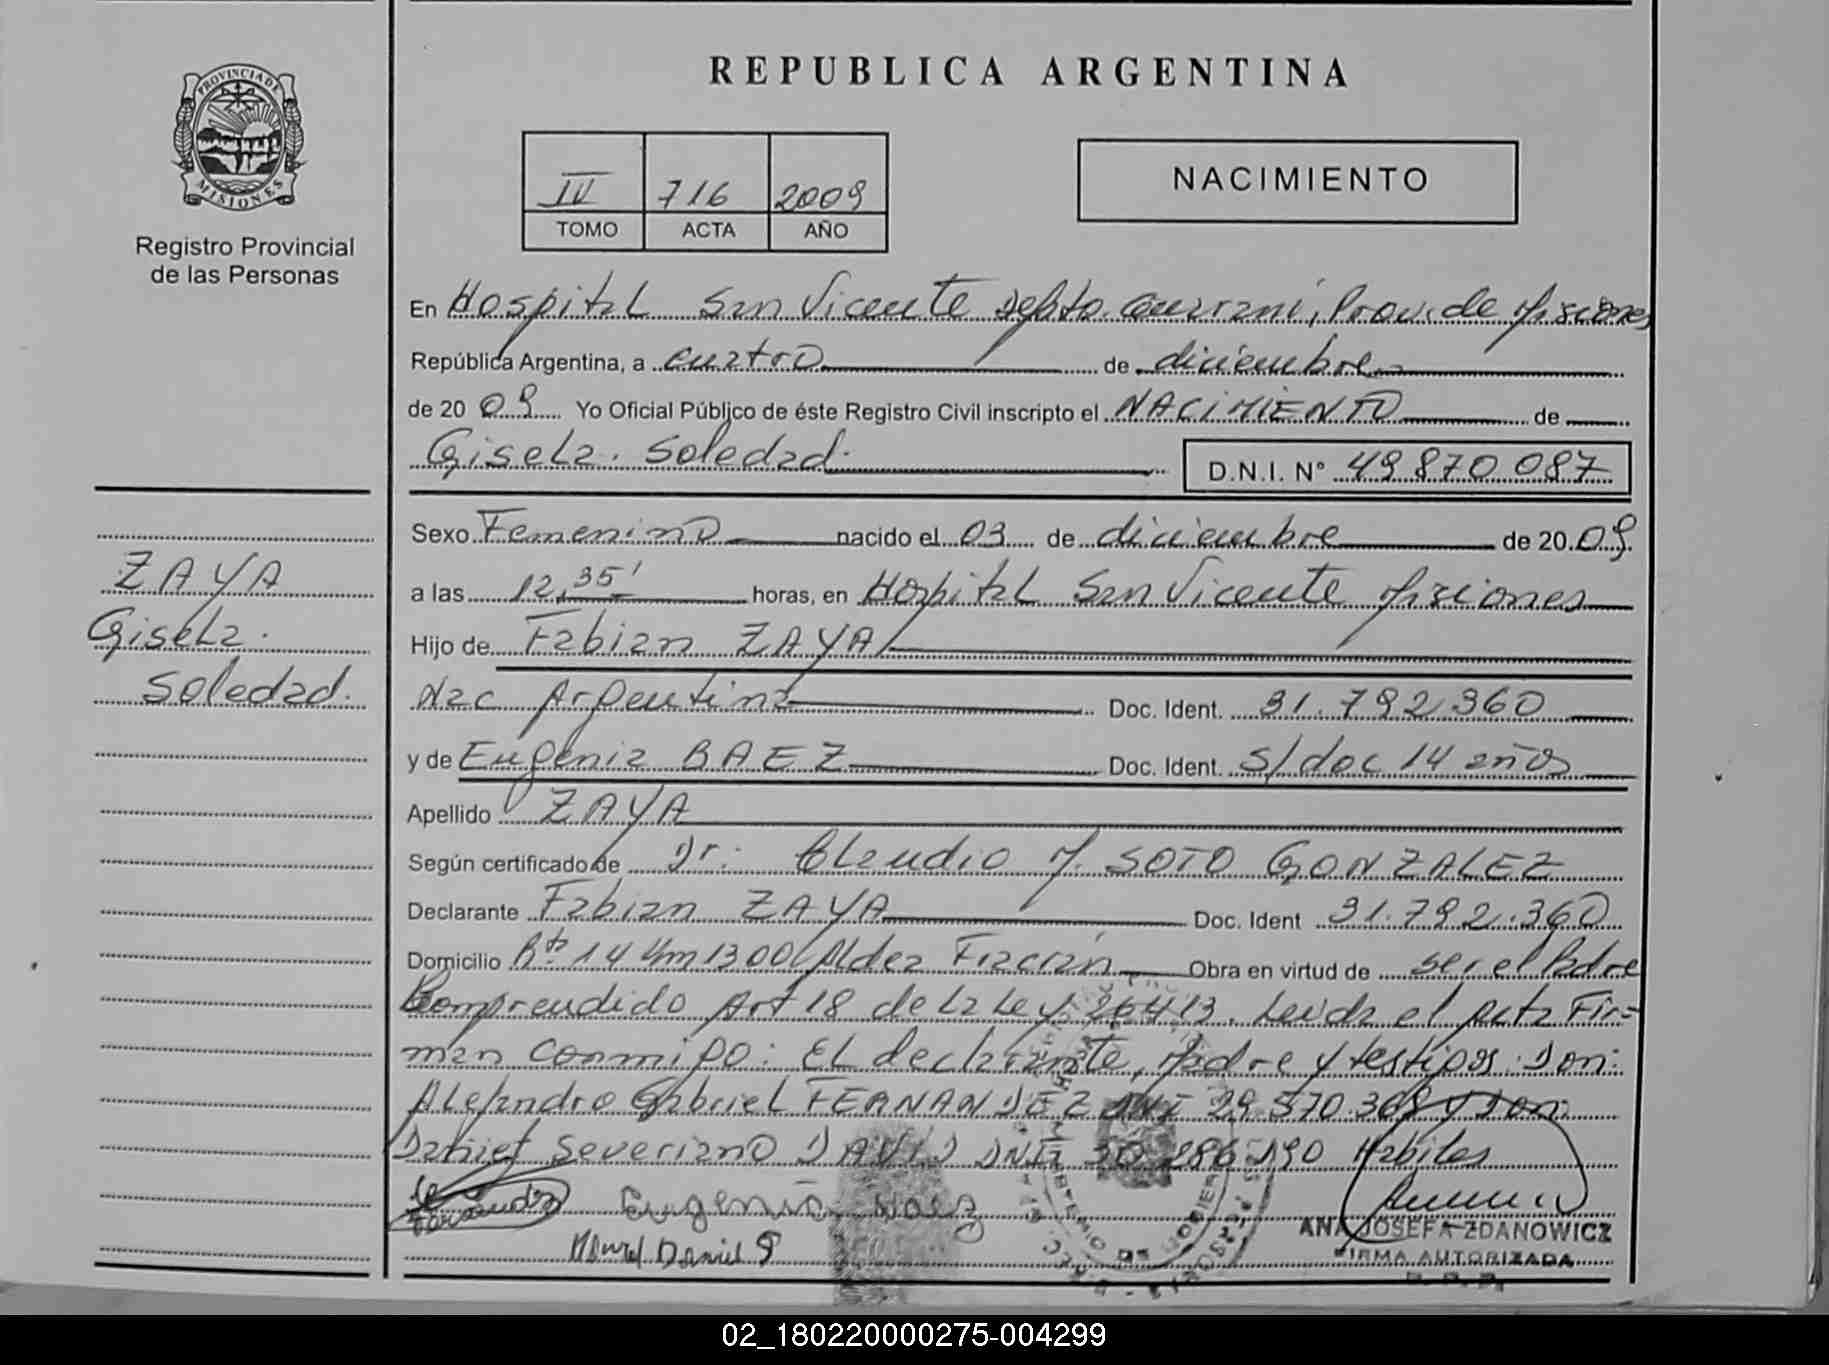 REPUBLICA ARGENTINA
PROVINCIA DE
MISIONES
Registro Provincial
de las Personas
IV 716 2009
TOMO ACTA AÑO
NACIMIENTO
En Hospital San Vicente Depto. Guarani, Prov. de Misiones
República Argentina, a cuatro de diciembre
de 2009 Yo Oficial Público de éste Registro Civil inscripto el NACIMIENTO de
Gisela Soledad
D.N.I. N° 49.870.087
ZAYA
Gisela
Soledad
Sexo Femenino nacido el 03 de diciembre de 2009
a las 12,35' horas, en Hospital San Vicente Misiones
Hijo de Fabian ZAYA
Nac Argentina Doc. Ident. 31.792.360
y de Eugenia BAEZ Doc. Ident. s/doc 14 años
Apellido ZAYA
Según certificado de Dr. Claudio M. SOTO GONZALEZ
Declarante Fabian ZAYA Doc. Ident 31.792.360
Domicilio Rta 14 Km 1300 Aldea Obra en virtud de ser el Padre
Comprendido Art 18 de la Ley 26413. Leida el acta Fir=
man conmigo: El declarante, Madre y testigos: Don:
Alejandro Gabriel FERNANDEZ DNI 29.570.368 y Don
Daniel Severiano DAVID DNI 30 286 190 Habiles
Fernandez Eugenia Baez
Daniel S
ANA JOSEFA ZDANOWICZ
FIRMA AUTORIZADA
02_180220000275-004299